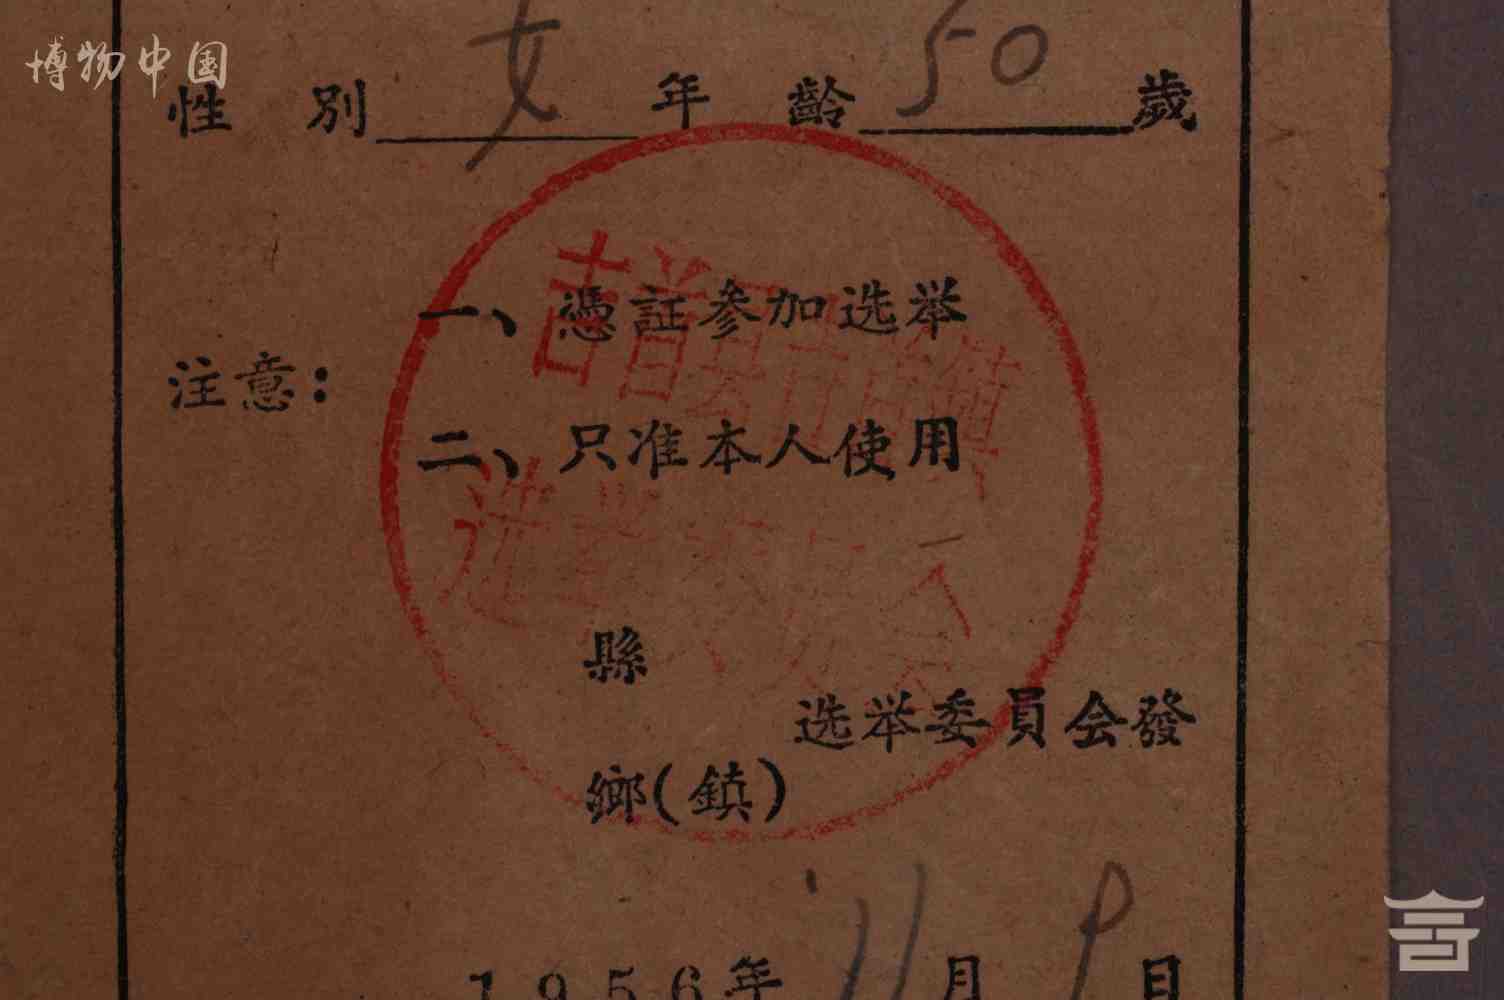 博物中国
性別 女 年齡 50 歲
注意：
一、憑証参加选举
二、只准本人使用
縣
鄉(鎮)
选举委員会發
1956年11月9日